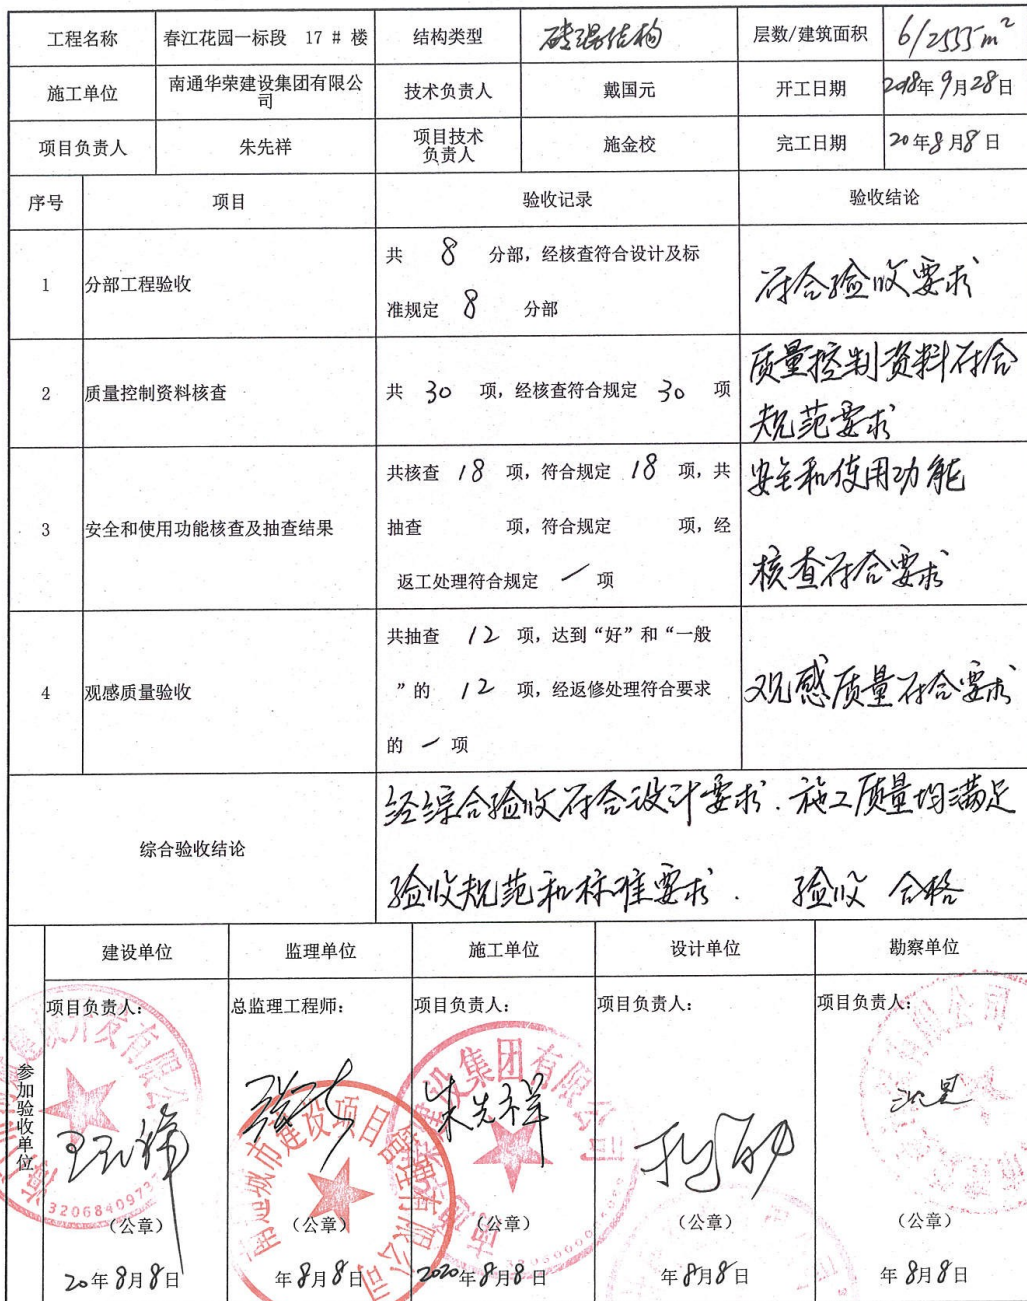 工程名称 春江花园一标段 17 # 楼 结构类型 砖混结构 层数/建筑面积 6/2535m²
施工单位 南通华荣建设集团有限公司 技术负责人 戴国元 开工日期 2018年9月28日
项目负责人 朱先祥 项目技术负责人 施金校 完工日期 20年8月8日
序号 项目 验收记录 验收结论
1 分部工程验收 共 8 分部，经核查符合设计及标
准规定 8 分部 符合验收要求
2 质量控制资料核查 共 30 项，经核查符合规定 30 项 质量控制资料符合
规范要求
3 安全和使用功能核查及抽查结果 共核查 18 项，符合规定 18 项，共
抽查 项，符合规定 项，经
返工处理符合规定 / 项 安全和使用功能
核查符合要求
4 观感质量验收 共抽查 12 项，达到“好”和“一般
”的 12 项，经返修处理符合要求
的 / 项 观感质量符合要求
综合验收结论 经综合验收符合设计要求．施工质量均满足
验收规范和标准要求． 验收 合格
参加验收单位 建设单位 监理单位 施工单位 设计单位 勘察单位
项目负责人： 总监理工程师： 项目负责人： 项目负责人： 项目负责人：
朱先祥
南通城市建设项目监理有限公司
建设集团有限公司
开发有限公
有限公司
3206840973
（公章） （公章） （公章） （公章） （公章）
20年8月8日 年8月8日 2020年8月8日 年8月8日 年8月8日